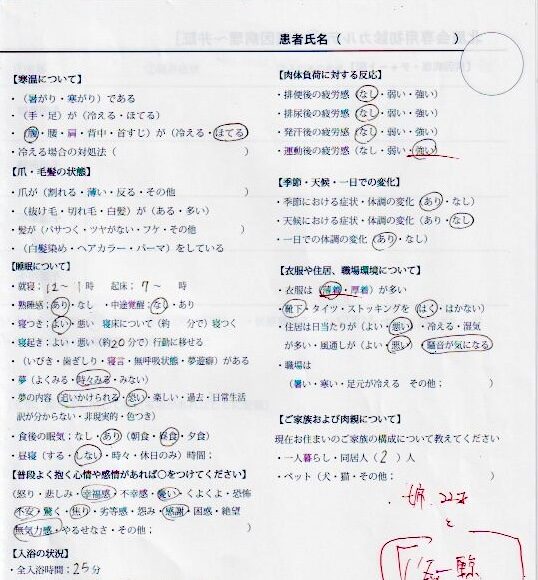 患者氏名（　　　　　　　　）
【寒温について】
・（暑がり・寒がり）である
・（手・足）が（冷える・ほてる）
・（腹・腰・肩・背中・首すじ）が（冷える・ほてる）
・冷える場合の対処法（　　　　　　　　）
【爪・毛髪の状態】
・爪が（割れる・薄い・反る・その他　　　　　）
・（抜け毛・切れ毛・白髪）が（ある・多い）
・髪が（パサつく・ツヤがない・フケ・その他　　　）
・（白髪染め・ヘアカラー・パーマ）をしている
【睡眠について】
・就寝：12〜1時　起床：7〜　時
・熟睡感：あり・なし　・中途覚醒：なし・あり
・寝つき：よい・悪い　寝床について（約　　分で）寝つく
・寝起き：よい・悪い（約20分で）行動に移せる
・（いびき・歯ぎしり・寝言・無呼吸状態・夢遊癖）がある
・夢（よくみる・時々みる・みない）
・夢の内容（追いかけられる・恐い・楽しい・過去・日常生活
訳が分からない・非現実的・色つき）
・食後の眠気：なし・あり（朝食・昼食・夕食）
・昼寝（する・しない・時々・休日のみ）時間：
【普段よく抱く心情や感情があれば○をつけてください】
（怒り・悲しみ・幸福感・不幸感・憂い・くよくよ・恐怖
不安・驚く・焦り・劣等感・怨み・感謝・困惑・絶望
無気力感・やるせなさ・その他：　　　　　）
【入浴の状況】
・全入浴時間：25分
【肉体負荷に対する反応】
・排便後の疲労感（なし・弱い・強い）
・排尿後の疲労感（なし・弱い・強い）
・発汗後の疲労感（なし・弱い・強い）
・運動後の疲労感（なし・弱い・強い）
【季節・天候・一日での変化】
・季節における症状・体調の変化（あり・なし）
・天候における症状・体調の変化（あり・なし）
・一日での体調の変化（あり・なし）
【衣服や住居、職場環境について】
・衣服は（薄着・厚着）が多い
（靴下・タイツ・ストッキングを（はく・はかない）
・住居は日当たりが（よい・悪い）・冷える・湿気
が多い・風通しが（よい・悪い）・騒音が気になる）
・職場は
（暑い・寒い・足元が冷える　その他：　　　　）
【ご家族および肉親について】
現在お住まいのご家族の構成について教えてください
・一人暮らし・同居人（2）人
・ペット（犬・猫・その他：　　　　　）
と